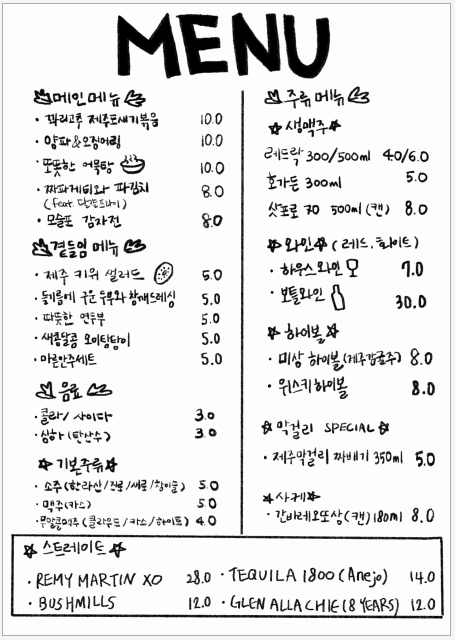 MENU
메인메뉴
· 꽈리고추 제주돈새기볶음 10.0
· 양파&오징어링 10.0
· 또똣한 어묵탕 10.0
· 짜파게티와 파김치 8.0
(feat. 달걀프라이)
· 모슬포 감자전 8.0
곁들임 메뉴
· 제주 키위 샐러드 5.0
· 들기름에 구운 두부와 참깨드레싱 5.0
· 따뜻한 연두부 5.0
· 새콤달콤 오이탕탕이 5.0
· 마른안주세트 5.0
음료
· 콜라/사이다 3.0
· 심하(탄산수) 3.0
기본주류
· 소주(한라산/진로/새로/참이슬) 5.0
· 맥주(카스) 5.0
· 무알콜맥주(클라우드/카스/하이트) 4.0
주류메뉴
생맥주
레드락 300/500ml 4.0/6.0
호가든 300ml 5.0
삿포로 70 500ml(캔) 8.0
와인 (레드,화이트)
· 하우스와인 7.0
· 보틀와인 30.0
하이볼
· 미상 하이볼(제주감귤주) 8.0
· 위스키하이볼 8.0
막걸리 SPECIAL
· 제주막걸리 짜배기 350ml 5.0
사케
· 간바레오또상(캔)180ml 8.0
스트레이트
· REMY MARTIN XO 28.0
· BUSHMILLS 12.0
· TEQUILA 1800 (Anejo) 14.0
· GLEN ALLACHIE (8 YEARS) 12.0